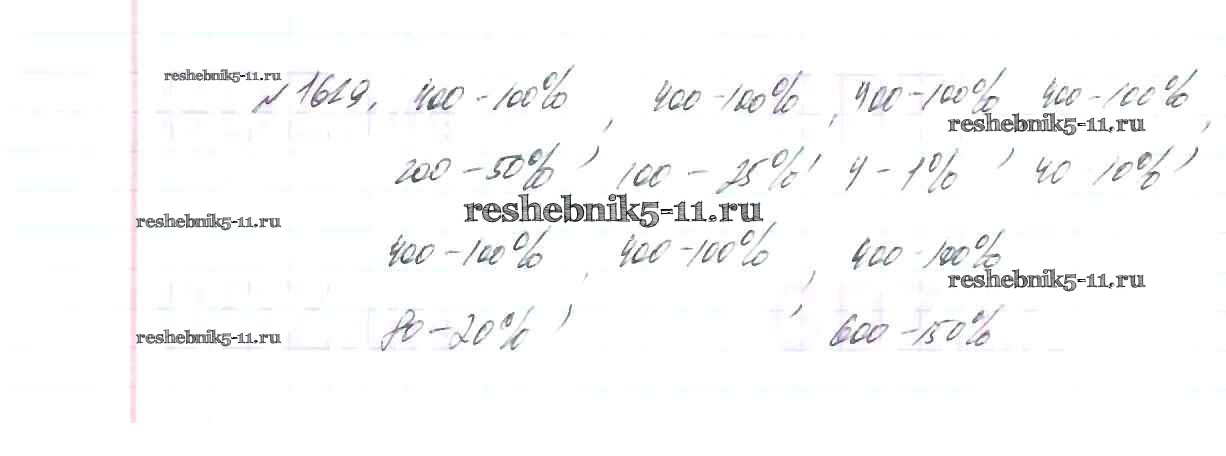 reshebnik5-11.ru
№1619, 400-100%, 400-100%, 400-100% 400-100%,
reshebnik5-11.ru
200-50%, 100-25%, 4-1%, 40 10%,
reshebnik5-11.ru
reshebnik5-11.ru
400-100%, 400-100%, 400-100%
reshebnik5-11.ru
reshebnik5-11.ru
80-20%, , 600-150%